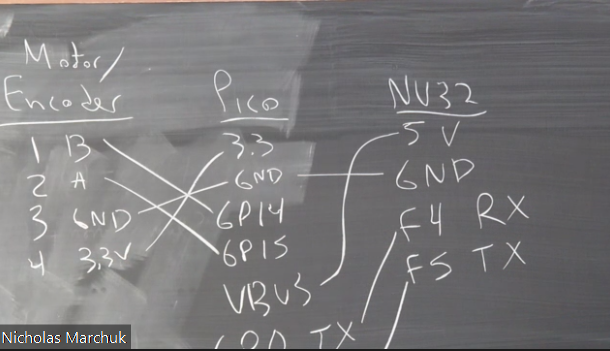 Motor/
Encoder
1 B
2 A
3 GND
4 3.3V
Pico
3.3
GND
GP14
GP15
VBUS
TX
NU32
5 V
GND
F4 RX
F5 TX
Nicholas Marchuk